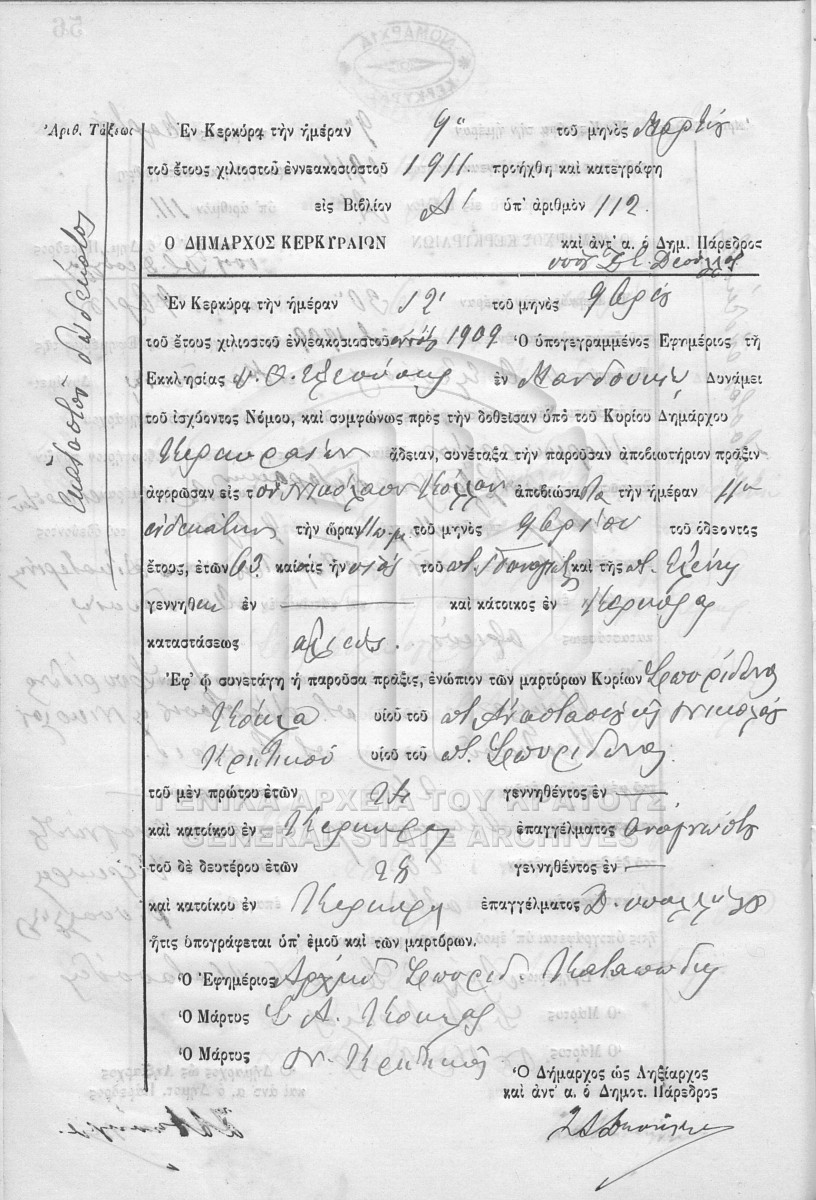 Ἀριθ. Τάξεως
Ἑκατοστὸν δωδέκατος
Ἐν Κερκύρᾳ τὴν ἡμέραν 9ην τοῦ μηνὸς Μαρτίου
τοῦ ἔτους χιλιοστοῦ ἐννεακοσιοστοῦ 1911 προήχθη καὶ κατεγράφη
εἰς Βιβλίον Α' ὑπ' ἀριθμὸν 112.
Ὁ ΔΗΜΑΡΧΟΣ ΚΕΡΚΥΡΑΙΩΝ καὶ ἀντ' α. ὁ Δημ. Πάρεδρος
Ἐν Κερκύρᾳ τὴν ἡμέραν 12 τοῦ μηνὸς 9βρίου
τοῦ ἔτους χιλιοστοῦ ἐννεακοσιοστοῦ 1909 Ὁ ὑπογεγραμμένος Ἐφημέριος τῆς
Ἐκκλησίας ἐν Μανδουκίῳ Δυνάμει
τοῦ ἰσχύοντος Νόμου, καὶ συμφώνως πρὸς τὴν δοθεῖσαν ὑπὸ τοῦ Κυρίου Δημάρχου
Κερκυραίων ἄδειαν, συνέταξα τὴν παροῦσαν ἀποβιωτήριον πρᾶξιν
ἀφορῶσαν εἰς τὸν Νικόλαον ἀποβιώσαντα τὴν ἡμέραν 11ην
ἑνδεκάτην τὴν ὥραν 11 π.μ. τοῦ μηνὸς 9βρίου τοῦ ὁδεύοντος
ἔτους, ἐτῶν 63 καὶ ὅστις ἦν υἱὸς τοῦ ποτ. καὶ τῆς ποτ. Ἑλένης
γεννηθεὶς ἐν — καὶ κάτοικος ἐν Κερκύρᾳ
καταστάσεως ἁλιεύς.
Ἐφ' ᾧ συνετάγη ἡ παροῦσα πρᾶξις, ἐνώπιον τῶν μαρτύρων Κυρίων Σπυρίδωνα
Κόκλα υἱοῦ τοῦ ποτ. Ἀναστασίου καὶ Νικολάου
Κρητικοῦ υἱοῦ τοῦ ποτ. Σπυρίδωνα.
τοῦ μὲν πρώτου ἐτῶν 24 γεννηθέντος ἐν —
καὶ κατοίκου ἐν Κερκύρᾳ ἐπαγγέλματος ἀναγνώστου
τοῦ δὲ δευτέρου ἐτῶν 28 γεννηθέντος ἐν —
καὶ κατοίκου ἐν Κερκύρᾳ ἐπαγγέλματος Δ. υπαλλήλου
ἥτις ὑπογράφεται ὑπ' ἐμοῦ καὶ τῶν μαρτύρων.
Ὁ Ἐφημέριος Ἀρχιμ. Σπυρίδ. Καταπόδης
Ὁ Μάρτυς Σ. Α. Κόκλας
Ὁ Μάρτυς Ν. Κρητικός
Ὁ Δήμαρχος ὡς Ληξίαρχος
καὶ ἀντ' α. ὁ Δημοτ. Πάρεδρος
ΓΕΝΙΚΑ ΑΡΧΕΙΑ ΤΟΥ ΚΡΑΤΟΥΣ
GENERAL STATE ARCHIVES